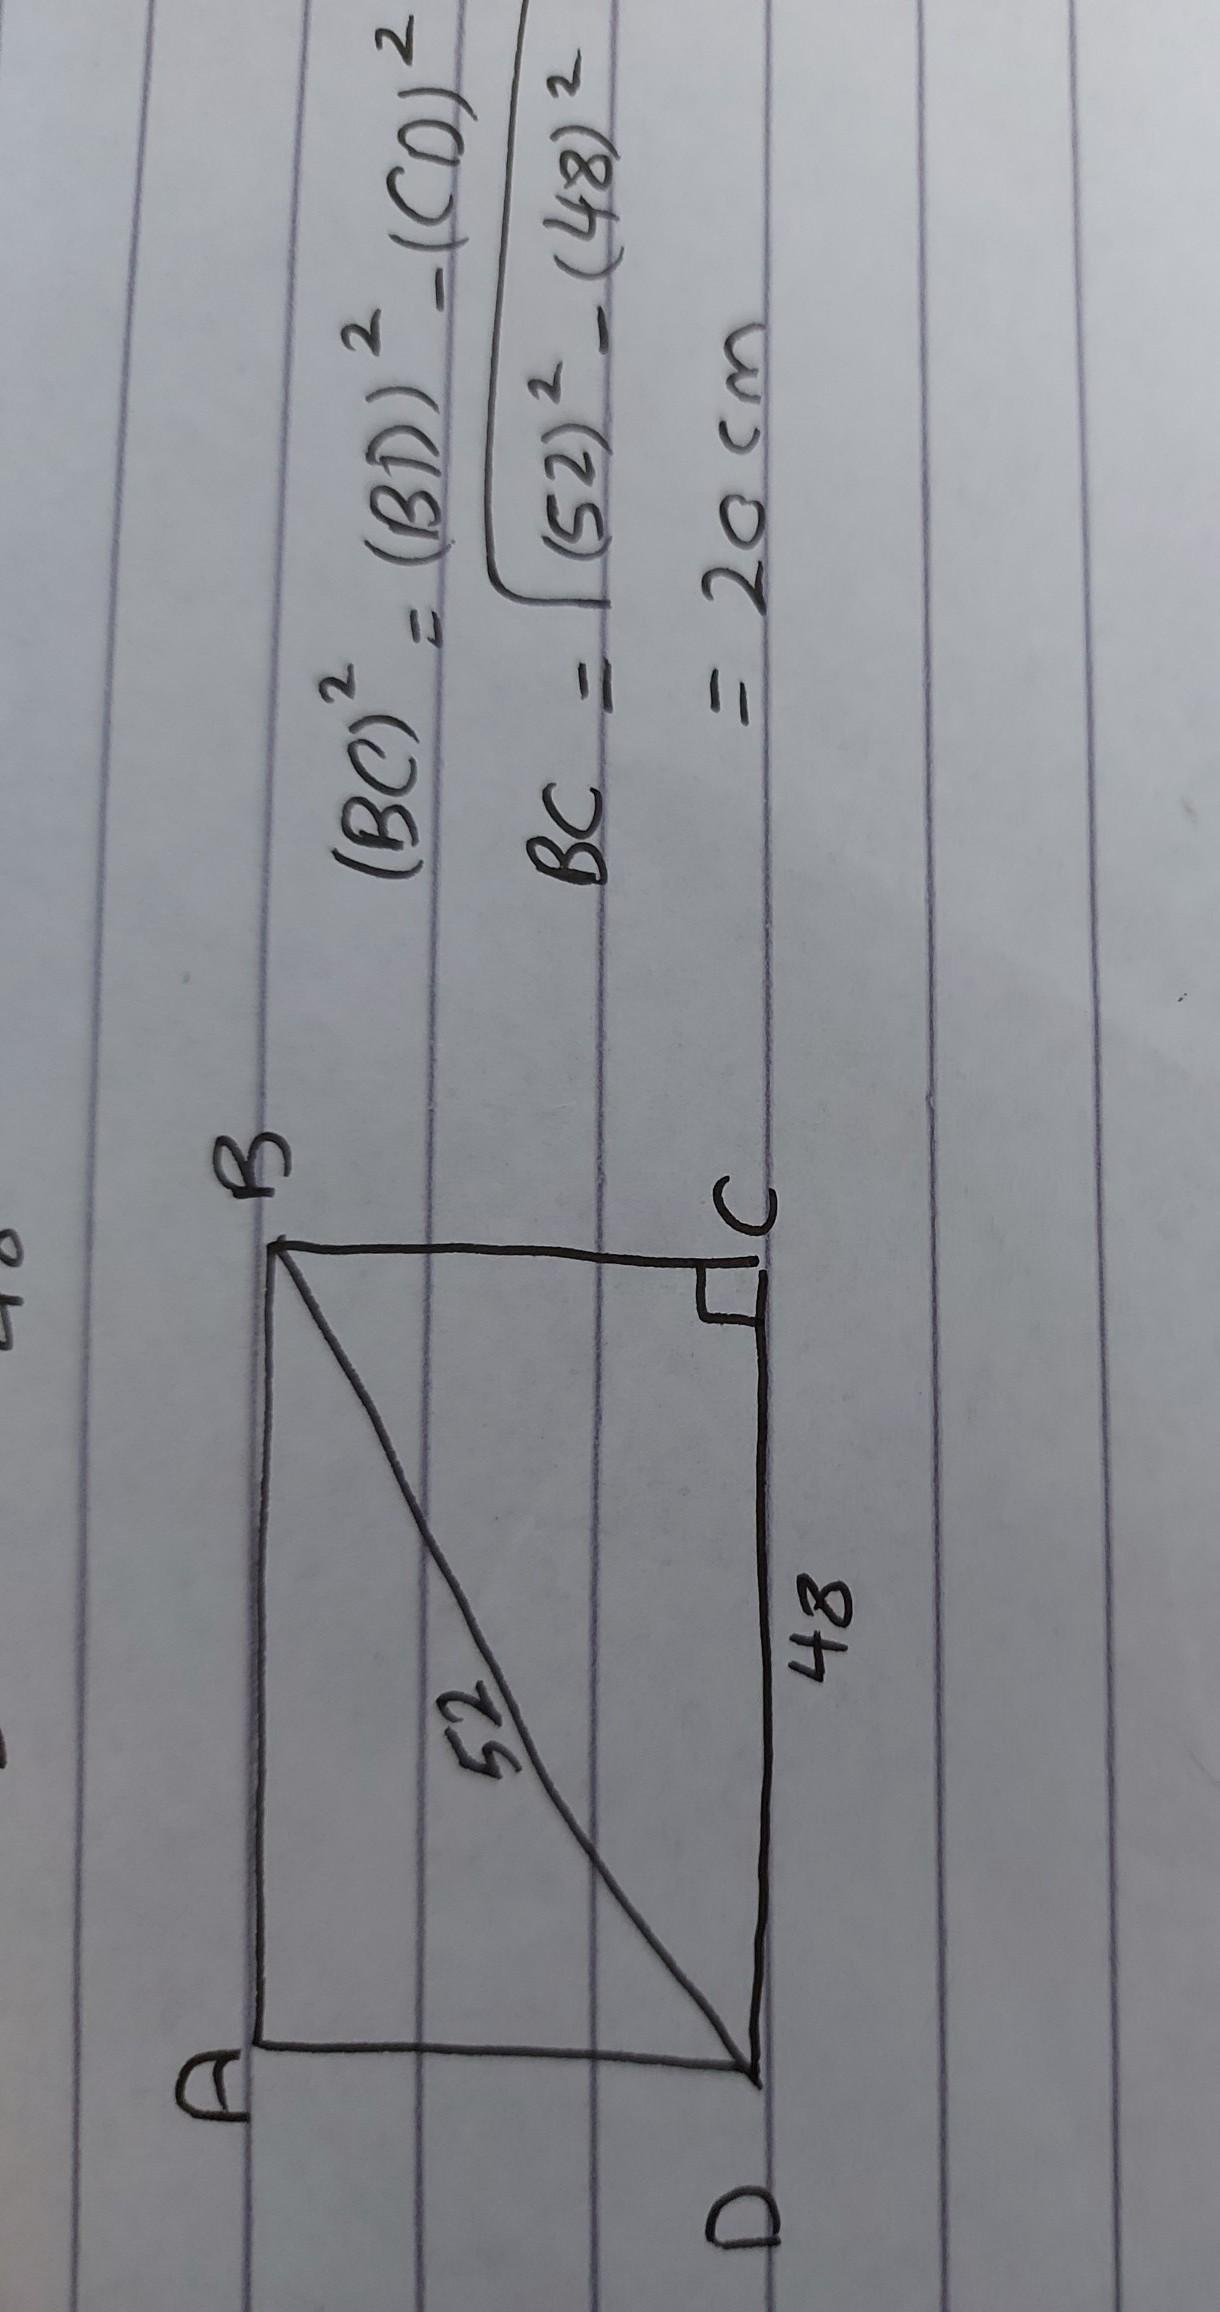 A
B
52
D
C
48
(BC)² = (BD)² - (CD)²
BC = √(52)² - (48)²
= 20 cm